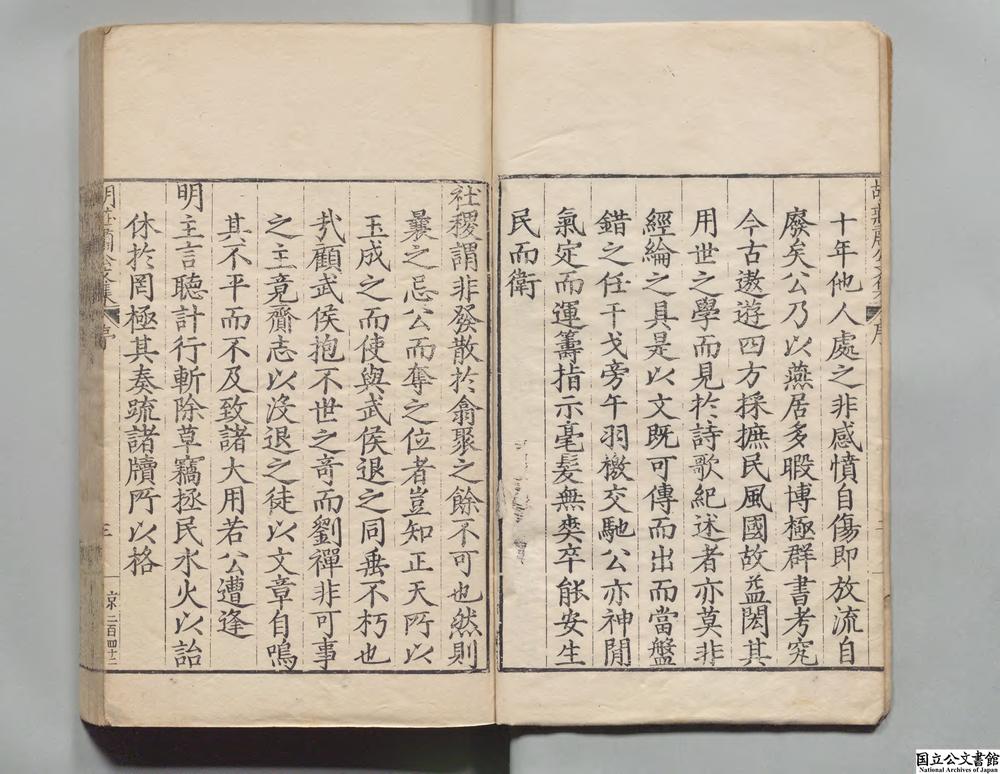 十年他人處之非感憤自傷即放流自
廢矣公乃以燕居多暇博極群書考究
今古遨遊四方採摭民風國故益閎其
用世之學而見於詩歌紀述者亦莫非
經綸之具是以文既可傳而出而當盤
錯之任干戈旁午羽檄交馳公亦神閒
氣定而運籌指示毫髮無爽卒能安生
民而衛
社稷謂非發散於翕聚之餘不可也然則
曩之忌公而奪之位者豈知正天所以
玉成之而使與武侯退之同垂不朽也
㢤顧武侯抱不世之奇而劉禪非可事
之主竟齎志以沒退之徒以文章自鳴
其不平而不及致諸大用若公遭逢
明主言聽計行斬除草竊拯民水火以詒
休於罔極其奏疏諸牘所以格
序
三
京二百四十二
国立公文書館
National Archives of Japan